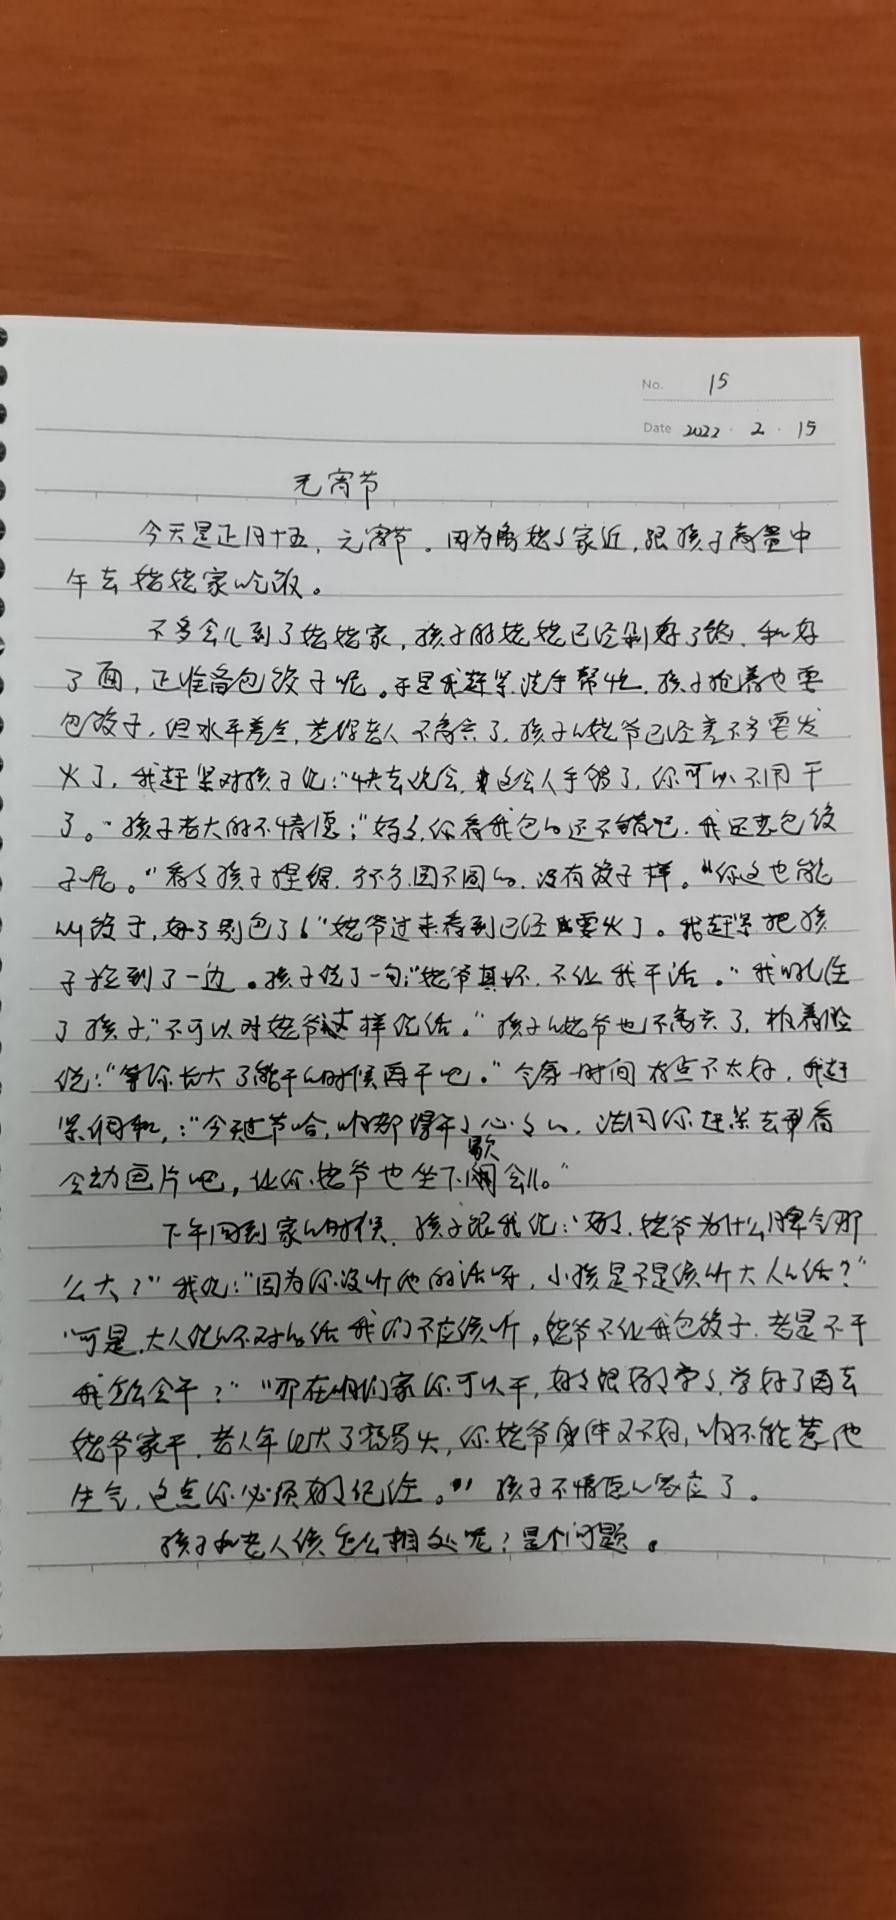 No. 15
Date 2022 . 2 . 15
元宵节
今天是正月十五,元宵节。因为离姥姥家近,跟孩子商量中
午去姥姥家吃饭。
不多会儿到了姥姥家,孩子的姥姥已经剁好了馅,和好
了面,正准备包饺子呢。于是我赶紧洗手帮忙,孩子抢着也要
包饺子,但水平差些,老人不高兴了,孩子的姥爷已经差不多要发
火了,我赶紧对孩子说:"快去玩会,这会人手够了,你可以不用干
了。"孩子老大的不情愿:"妈妈,你看我包的还不错吧,我还想包饺
子呢。"看看孩子捏得,方不方,圆不圆的,没有饺子样。"你这也能
叫饺子,好了别包了!"姥爷过来看到已经要火了。我赶紧把孩
子拉到了一边。孩子说了一句:"姥爷真坏,不让我干活。"我叱住
了孩子,"不可以对姥爷这样说话。"孩子的姥爷也不高兴了,板着脸
说:"等你长大了能干的时候再干吧。"气氛一时间有点不太好,我赶
紧调和,:"今天过节哈,咱都得开开心心的,诺同你赶紧去看
会动画片吧,让你姥爷也坐下歇会儿。"
下午回到家的时候,孩子跟我说:"妈妈,姥爷为什么脾气那
么大?"我说:"因为你没听他的话呀,小孩是不是该听大人的话?"
"可是,大人说的不对的话我们不应该听,姥爷不让我包饺子,老是不干
我怎么会干?""那在咱们家你可以干,好好跟妈妈学学,学好了再去
姥爷家干,老人年纪大了容易火,你姥爷身体又不好,咱不能惹他
生气,这点你必须好好记住。"孩子不情愿的答应了。
孩子和老人该怎么相处呢?是个问题。